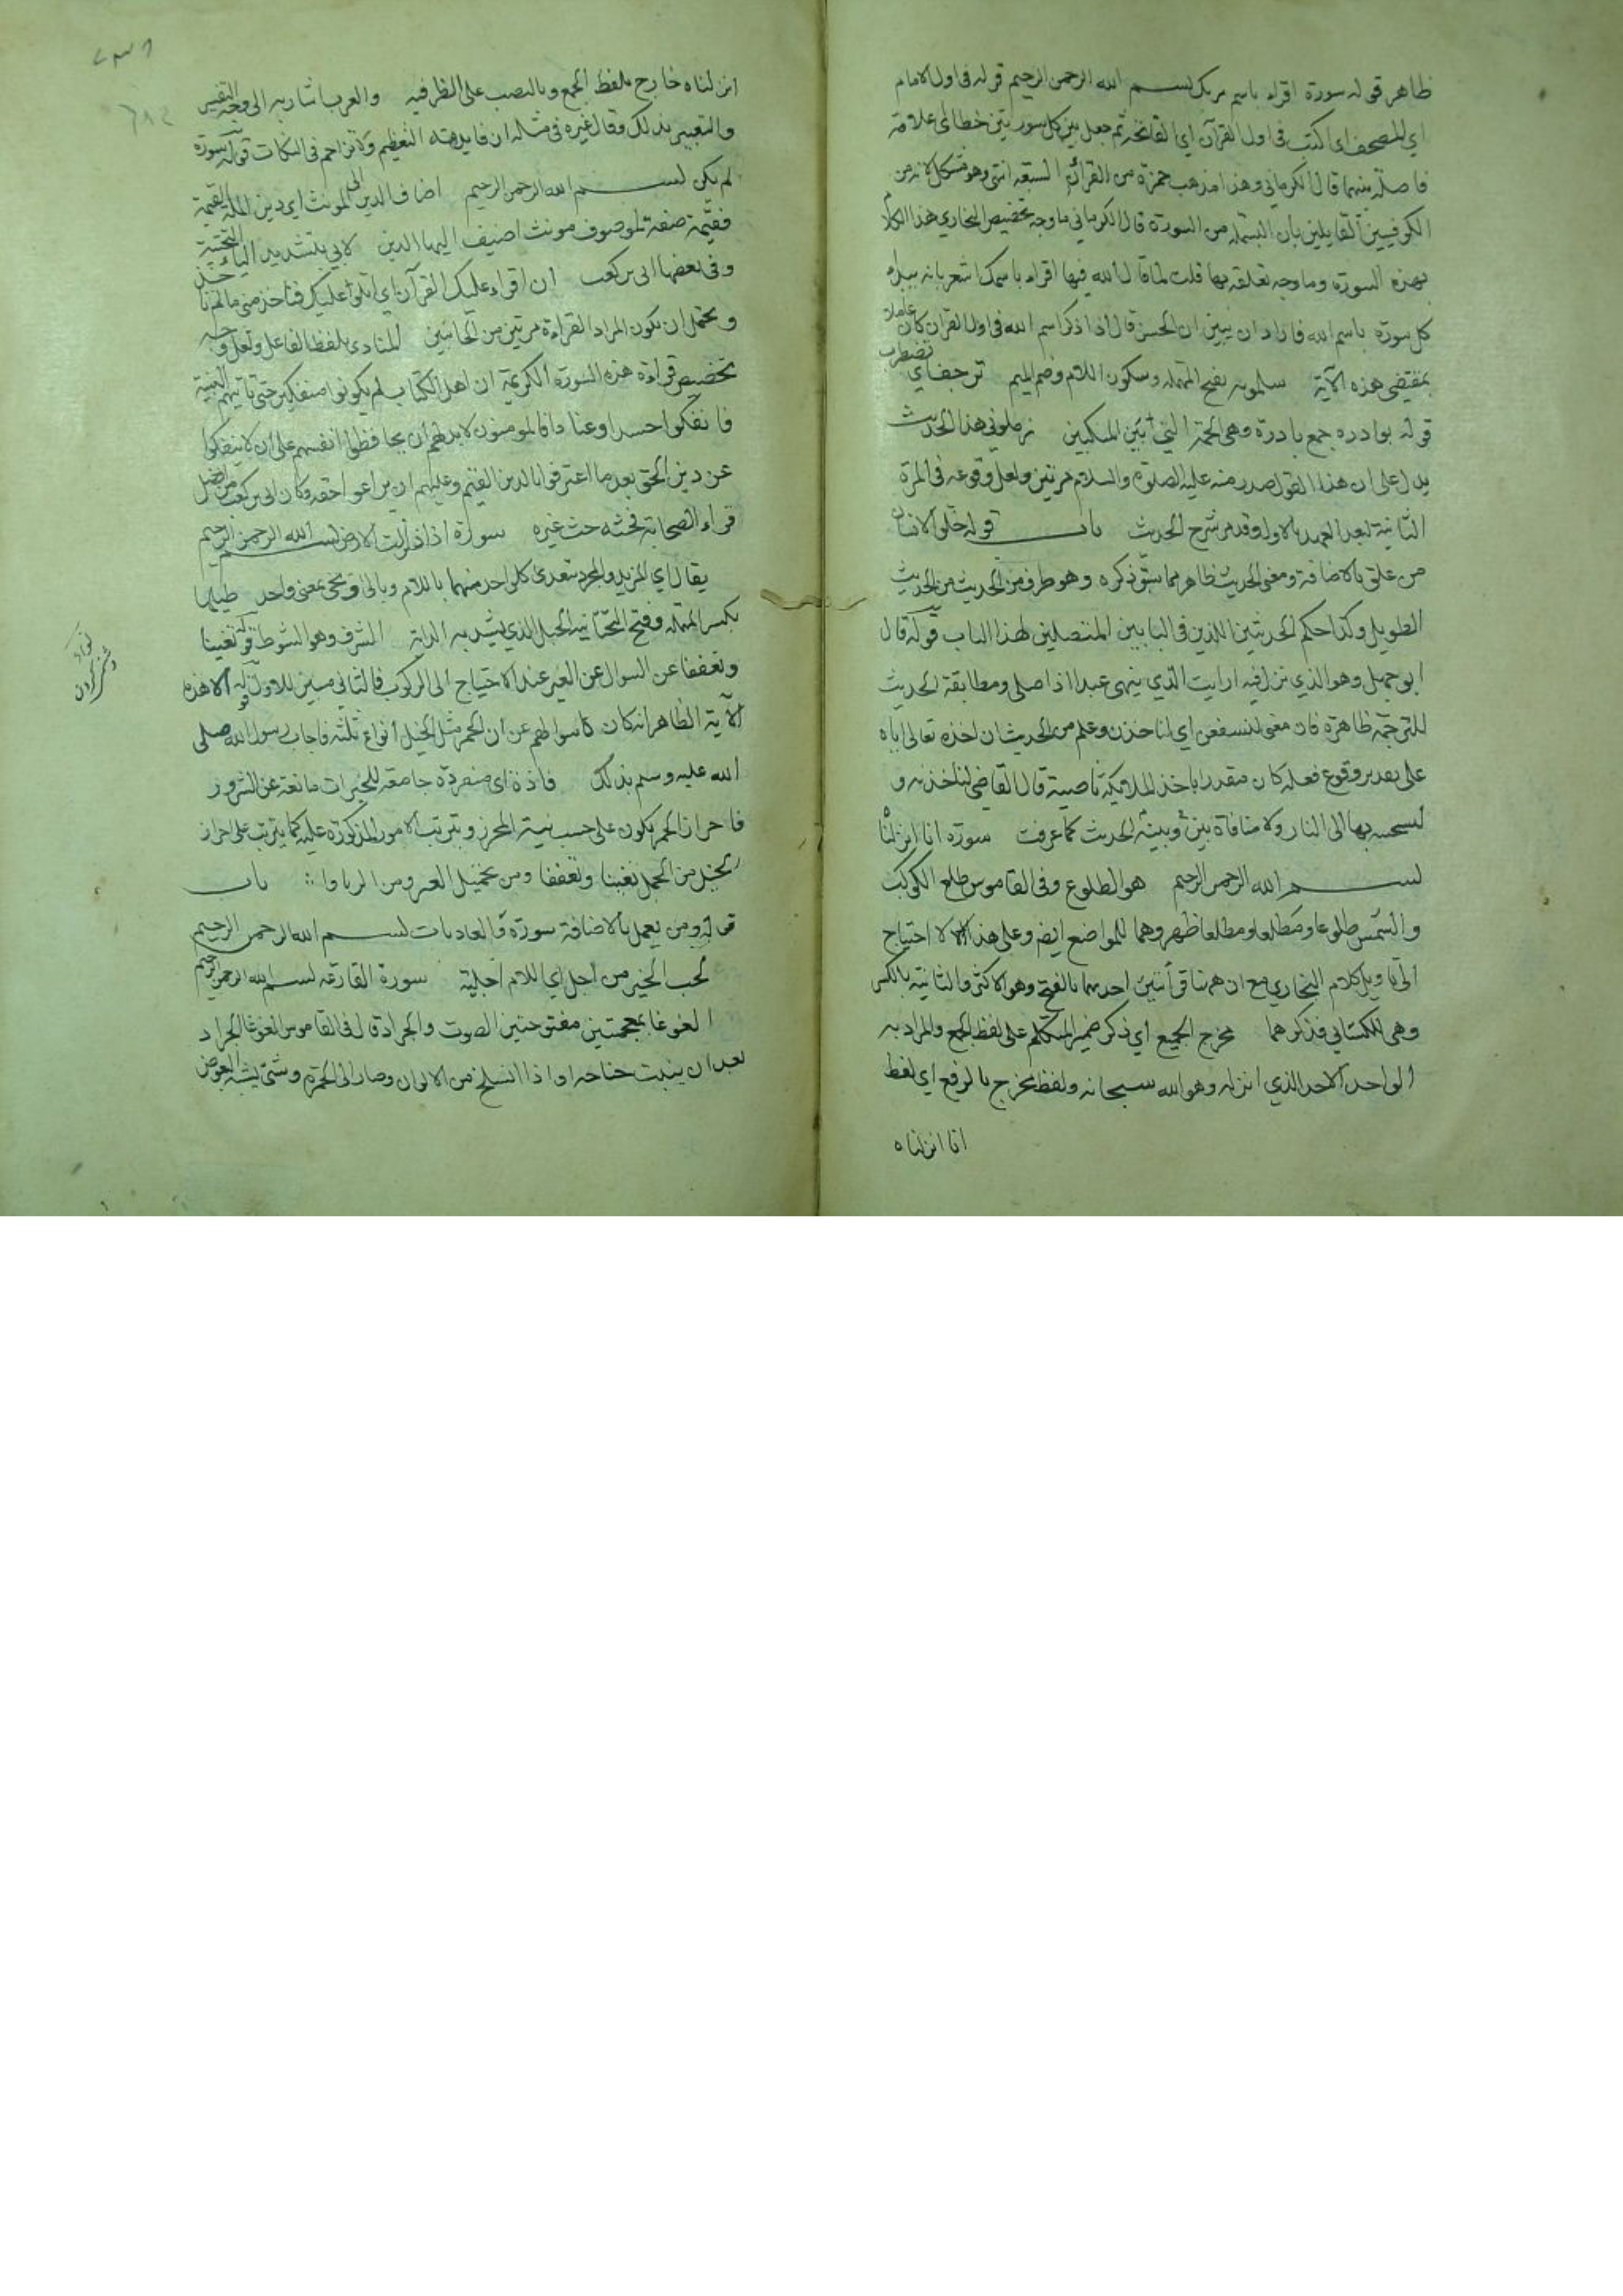 ظاهر قوله سورة اقراء باسم ربك بسم الله الرحمن الرحيم قوله في اول الامام
اي المصحف اي اكتب في اول القرآن اي الفاتحة ثم جعل بين كل سورتين خطا اي علامة
فاصلة بينهما قال الكرماني وهذا مذهب حمزة من القراء السبعة انتهى وهو مشكل لانه من
الكوفيين القايلين بأن البسملة من السورة قال الكرماني ما وجه تخصيص البخاري هذا الكلام
بهذه السورة وما وجه تعلقه بها قلت لما قال الله فيها اقراء باسمك اشعر بانه يبداء
كل سورة باسم الله فاراد ان يبين ان الحسن قال اذا ذكر اسم الله في اول القران كان عاملا
بمقتضى هذه الآية سلمويه بفتح المهملة وسكون اللام وضم الميم ترجف اي تضطرب
قوله بوادره جمع بادرة وهي اللحمة التي بين المنكبين زملوني هذا الحديث
يدل على ان هذا القول صدر منه عليه الصلوة والسلام مرتين ولعل وقوعه في المرة
الثانية لبعد العهد بالاول وقد مر شرح الحديث باب قوله خلق الانسان
من علق بالاضافة ومعنى الحديث ظاهر مما سبق ذكره وهو طرف من الحديث من الحديث
الطويل وكذا حكم الحديثين اللذين في البابين المتصلين لهذا الباب قوله قال
ابو جهل وهو الذي نزل فيه ارايت الذي ينهى عبدا اذا صلى ومطابقة الحديث
للترجمة ظاهرة فان معنى لنسفعن اي لناخذن وعلم من الحديث ان اخذه تعالى اياه
على تقدير وقوع فعله كان مقدرا باخذ الملائكة ناصيته قال القاضي لناخذنه و
لنسحبنه بها الى النار ولا منافاة بينه وبين الحديث كما عرفت سورة انا انزلناه
بسم الله الرحمن الرحيم هو الطلوع وفي القاموس طلع الكوكب
والشمس طلوعا ومطلعا ومطلعا ظهر وهما للمواضع ايضا وعلى هذا لا احتياج
الى تاويل كلام البخاري مع ان هما قرأتين احدهما بالفتح وهو الاكثر والثانية بالكسر
وهي للكسائي فذكرهما مخرج الجميع اي ذكر ضمير المتكلم على لفظ الجمع والمراد به
الواحد الاحد الذي انزله وهو الله سبحانه ولفظ مخرج بالرفع اي لفظ
انا انزلناه
انزلناه خارج بلفظ الجمع وبالنصب على الظرفية والعرب اشار به الى وجه التفسير
والتعبير بذلك وقال غيره في مثله ان فايدهته التعظيم ولا تزاحم في النكات قوله سورة
لم يكن بسم الله الرحمن الرحيم اضاف الدين الى المونث اي دين الملة القيمة
فقيمة صفة لموصوف مونث اضيف اليها الدين لابي بتشديد الياء التحتية
وفي بعضها ابي بن كعب ان اقراء عليك القرآن اي اتلو عليك فتاخذ مني
ويحتمل ان يكون المراد القراءة مرتين من الجانبين المنادي بلفظ الفاعل ولعل وجه
تخصيص قراءة هذه السورة الكريمة ان اهل الكتاب لم يكونوا منفكين حتى تأتيهم البينة
فانفكوا حسدا وعنادا فالمومنون لابد لهم ان يحافظوا انفسهم على ان لا ينفكوا
عن دين الحق بعد ما اعترفوا بالدين القيم وعليهم ان يراعوا حقه وكان ابي بن كعب من افضل
قراء الصحابة فخثه حث غيره سورة اذا زلزلت الارض بسم الله الرحمن الرحيم
يقال اي المزيد والمجرد تعدى كل واحد منهما باللام وبالى اوحى بمعنى واحد طيلها
بكسر المهملة وفتح التحتانية الحبل الذي يشد به الدابة الشرف وهو الشوط قوله تغنيا
وتعففا عن السوال عن الغير عند الاحتياج الى الركوب فالثاني مبين للاول قوله الا هذه
الآية الظاهر انه كان سوالهم عن ان الحمر مثل الخيل انواع ثلثة فاجاب رسول الله صلى
الله عليه وسلم بذلك فاذة اي منفردة جامعة للخيرات مانعة عن الشرور
فاحراز الحمر يكون على حسب نية المحرز ويترتب الامور المذكورة عليه كما يترتب على احراز
الخيل من الحمل تغنيا وتعففا ومن باب
قوله ومن يعمل بالاضافة سورة والعاديات بسم الله الرحمن الرحيم
لحب الخير من اجل اي اللام اجلية سورة القارعة بسم الله الرحمن الرحيم
الغوغا بمعجمتين مفتوحتين الصوت والجرادة قال في القاموس الغوغا الجراد
بعد ان ينبت جناحه او اذا انسلخ من الالوان وصار الى الحمرة وشئ يشبه البعوض